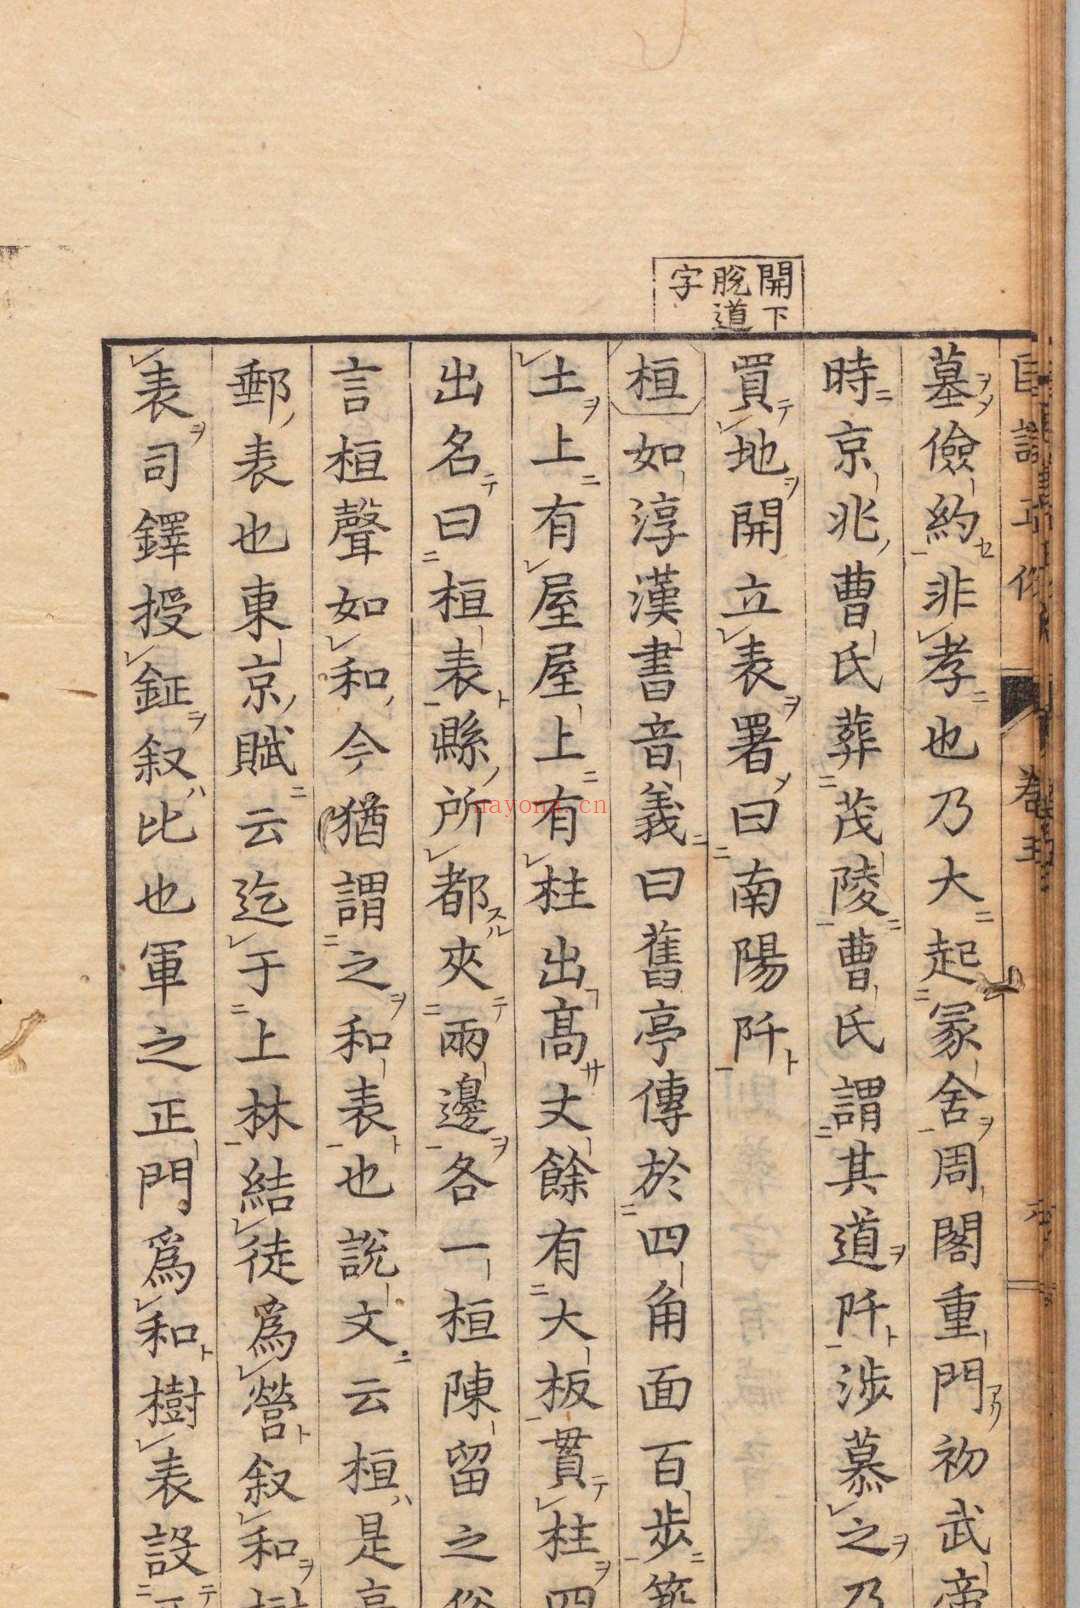 開下
脫道
字
墓儉約非孝也乃大起冢舍周閣重門初武帝
時京兆曹氏葬茂陵曹氏謂其道阡渉慕之乃
買地開立表署曰南陽阡
桓如淳漢書音義曰舊亭傳於四角面百步築
土上有屋屋上有柱出高丈餘有大板貫柱四
出名曰桓表縣所都夾兩邊各一桓陳留之俗
言桓聲如和今猶謂之和表也說文云桓是亭
郵表也東京賦云迄于上林結徒爲營叙和樹
表司鐸授鉦叙比也軍之正門爲和樹表設
nayona.cn